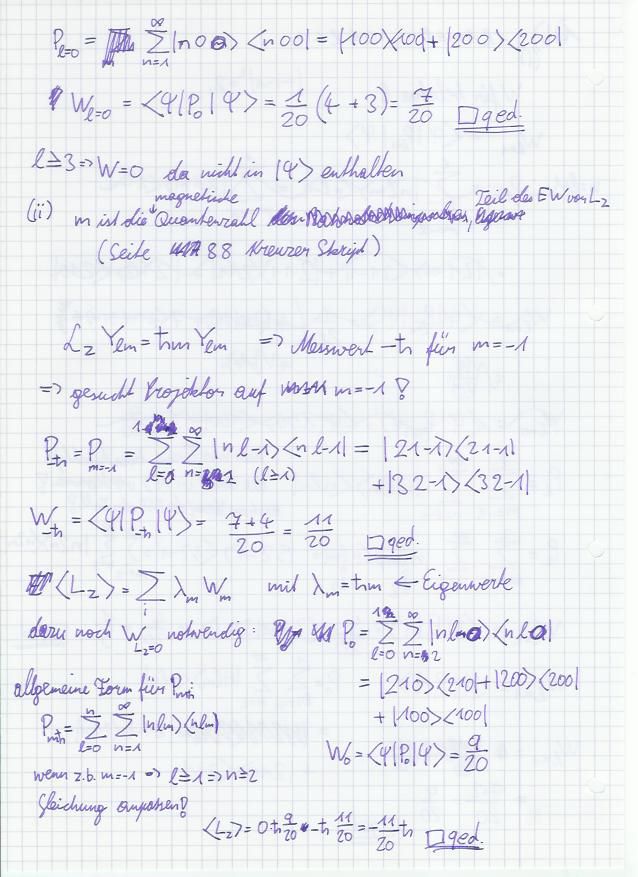 P_{l=0} = ∑_{n=1}^{∞} |n00> <n00| = |100><100| + |200><200|
W_{l=0} = <ψ|P_0|ψ> = 1/20 (4+3) = 7/20 □ qed.
l≥3 => W=0 da nicht in |ψ> enthalten
(ii) m ist die magnetische Quantenzahl, Teil des EW von L_z
(Seite 88 Kreuzer Skript)
L_z Y_{lm} = ħm Y_{lm} => Messwert -ħ für m=-1
=> gesucht Projektor auf m=-1!
P_{-ħ} = P_{m=-1} = ∑ ∑^{∞} |n l -1> <n l -1| = |2 1 -1> <2 1 -1|
(l≥1) + |3 2 -1> <3 2 -1|
W_{-ħ} = <ψ|P_{-ħ}|ψ> = (7+4)/20 = 11/20 □ qed.
<L_z> = ∑_i λ_m W_m mit λ_m = ħm ← Eigenwerte
dazu noch W_{L_z=0} notwendig: P_0 = ∑_{l=0} ∑^{∞} |n l 0> <n l 0|
= |210><210| + |200><200|
+ |100><100|
W_0 = <ψ|P_0|ψ> = 9/20
allgemeine Form für P_{mħ}:
P_{mħ} = ∑_{l=0}^{n} ∑_{n=1}^{∞} |nlm> <nlm|
wenn z.b. m=-1 => l≥1 => n≥2
Gleichung anpassen!
<L_z> = 0·ħ 9/20 - ħ 11/20 = -11/20 ħ □ qed.